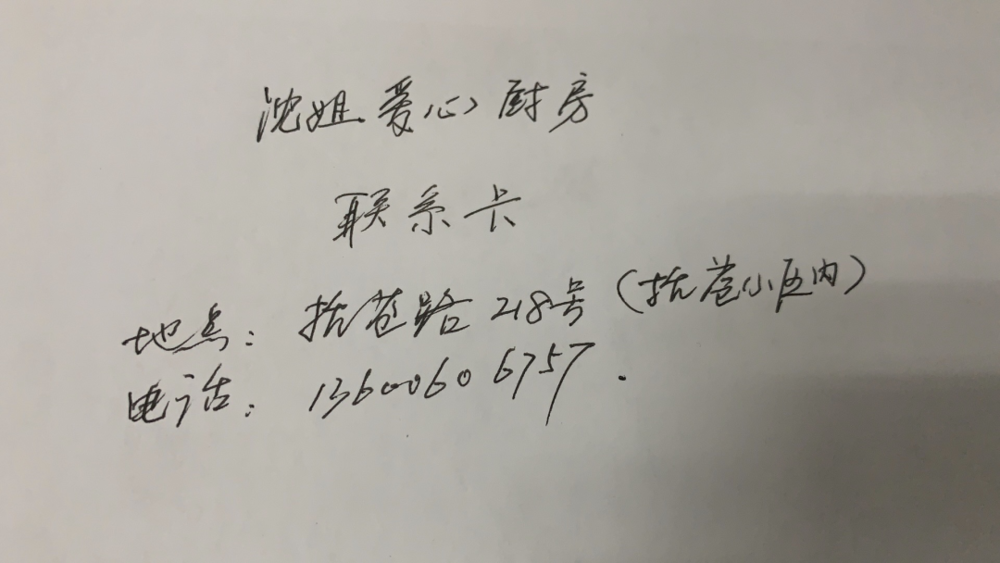 沈姐爱心厨房
联系卡
地点：括苍路218号（括苍小区内）
电话：13600606757．